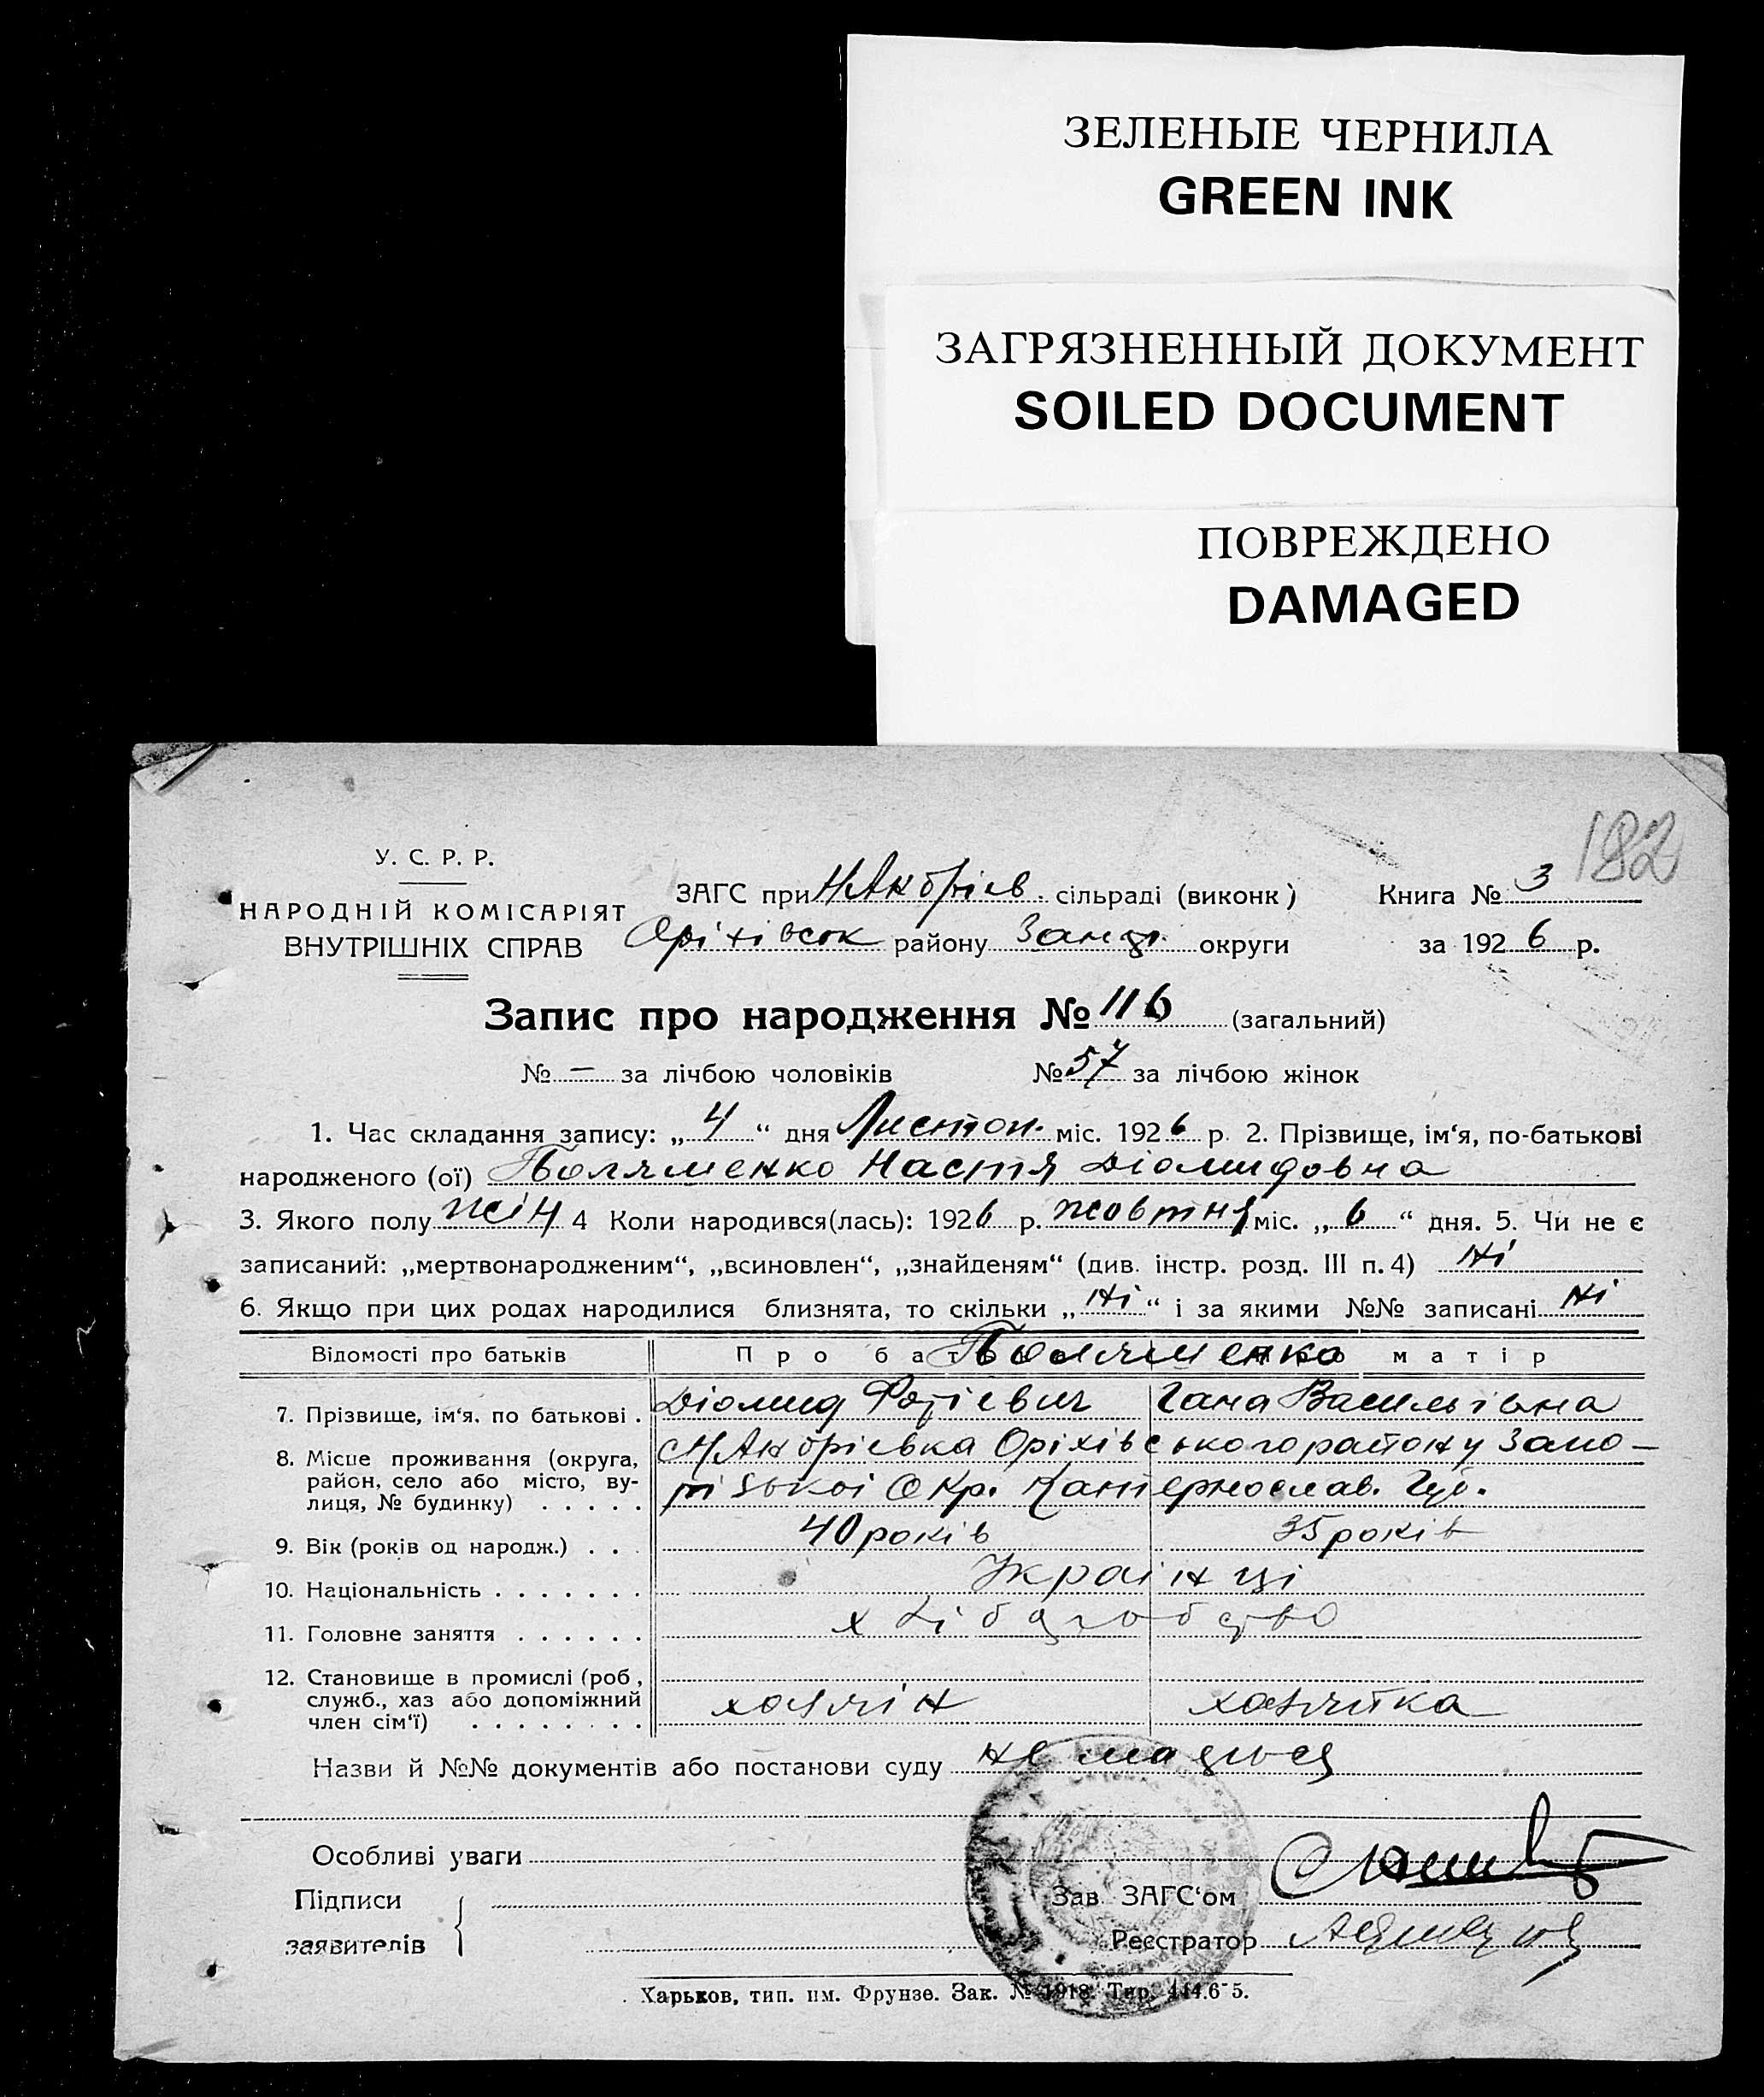 ЗЕЛЕНЫЕ ЧЕРНИЛА
GREEN INK
ЗАГРЯЗНЕННЫЙ ДОКУМЕНТ
SOILED DOCUMENT
ПОВРЕЖДЕНО
DAMAGED
182
У. С. Р. Р.
НАРОДНІЙ КОМІСАРІЯТ
ВНУТРІШНІХ СПРАВ
ЗАГС при Н Андріев. сільраді (виконк) Книга № 3
Оріхівськ району Запор. округи за 1926 р.
Запис про народження № 116 (загальний)
№ – за лічбою чоловіків № 57 за лічбою жінок
1. Час складання запису: „4“ дня Листоп. міс. 1926 р. 2. Прізвище, ім‘я, по-батькові
народженого (ої) Настя Діомидовна
3. Якого полу жін 4 Коли народився(лась): 1926 р. жовтня міс. „6“ дня. 5. Чи не є
записаний: „мертвонародженим“, „всиновлен“, „знайденям“ (див. інстр. розд. III п. 4) Ні
6. Якщо при цих родах народилися близнята, то скільки „Ні“ і за якими №№ записані Ні
Відомості про батьків Про батька Про матір
7. Прізвище, ім‘я, по батькові . Діомид Фотієвич Гана Васильівна
8. Місце проживання (округа, район, село або місто, вулиця, № будинку) . . . . . Н Андрієвка Оріхівського району Запо-
Окр. Катернослав. Губ.
9. Вік (років од народж.) . . . 40 років 35 років
10. Національність . . . . . . . Українці
11. Головне заняття . . . . . . хлібодобство
12. Становище в промислі (роб, служб., хаз або допоміжний член сім‘ї) . . . . . . . . хазяін хазяйка
Назви й №№ документів або постанови суду не мається
Особливі уваги
Підписи
заявителів
Зав. ЗАГС‘ом
Реєстратор
Харьков, тип. им. Фрунзе. Зак. № 1918. Тир. 444.6-5.